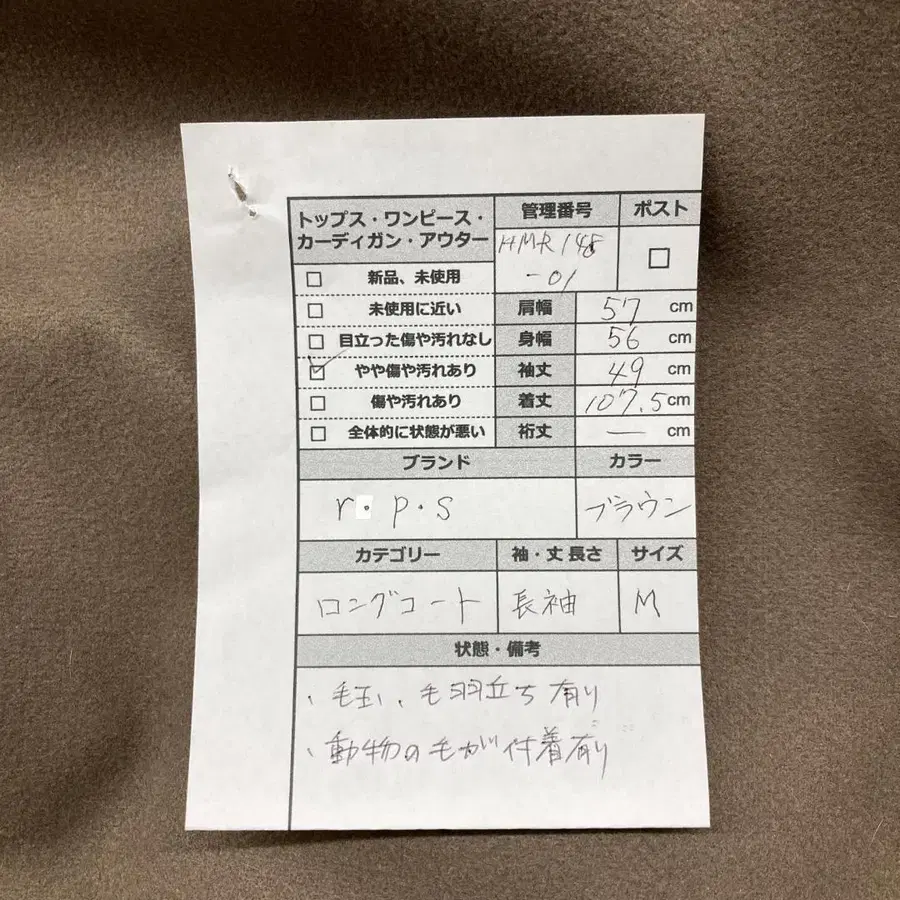 トップス・ワンピース・
カーディガン・アウター
管理番号
ポスト
HMR148
-01
新品、未使用
未使用に近い
目立った傷や汚れなし
やや傷や汚れあり
傷や汚れあり
全体的に状態が悪い
肩幅 57 cm
身幅 56 cm
袖丈 49 cm
着丈 107.5 cm
裄丈 — cm
ブランド
カラー
r・p・s
ブラウン
カテゴリー
袖・丈 長さ
サイズ
ロングコート
長袖
M
状態・備考
、毛玉、毛羽立ち有り
、動物の毛が付着有り